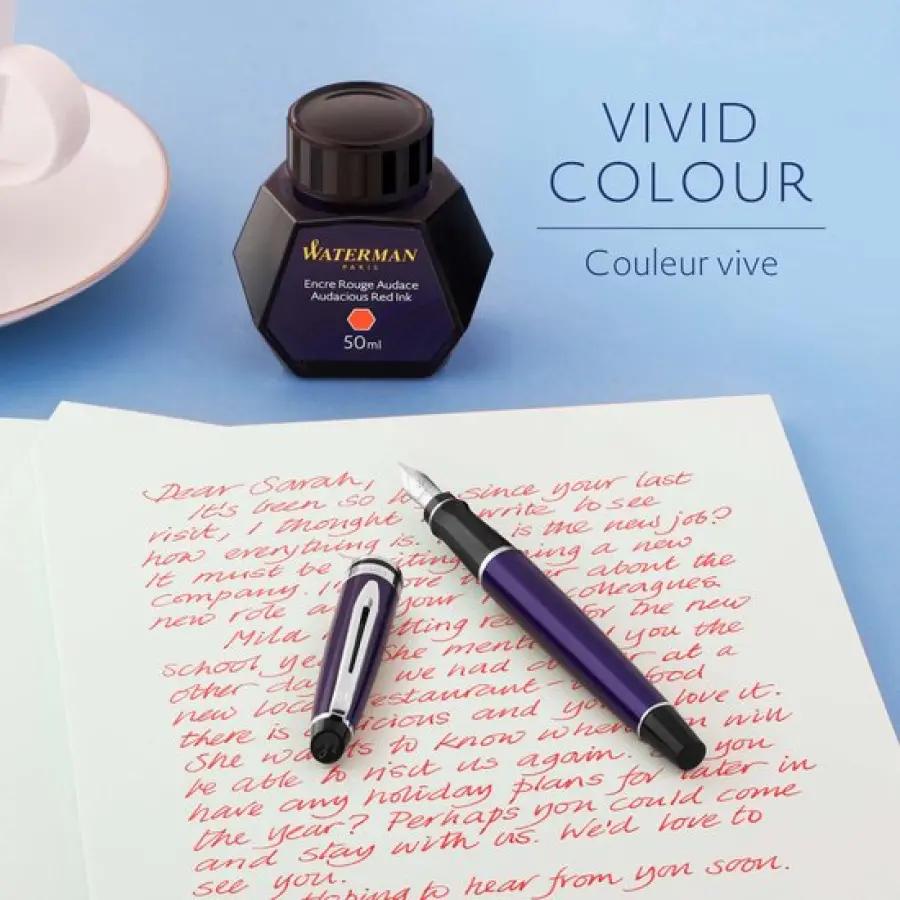 VIVID
COLOUR
Couleur vive
WATERMAN
PARIS
Encre Rouge Audace
Audacious Red Ink
50ml
Dear Sarah,
It's been so since your last
visit, I thought write to see
how everything is. is the new job?
It must be a new
company. about the
new role your colleagues
Mila for the new
school She you the
other we had at a
new restaurant- food
there is and love it.
She to know when will
be able to visit us again. you
have any holiday plans for later in
the year? Perhaps you could come
and stay with us. We'd love to
see you.
Hoping to hear from you soon.